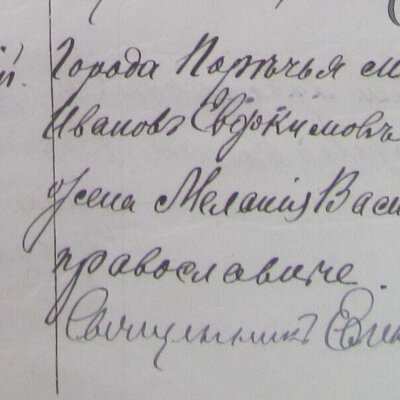 й.
Города Порѣчья м
Ивановъ Евдокимовъ
жена Меланія Васи
православные.
Священникъ